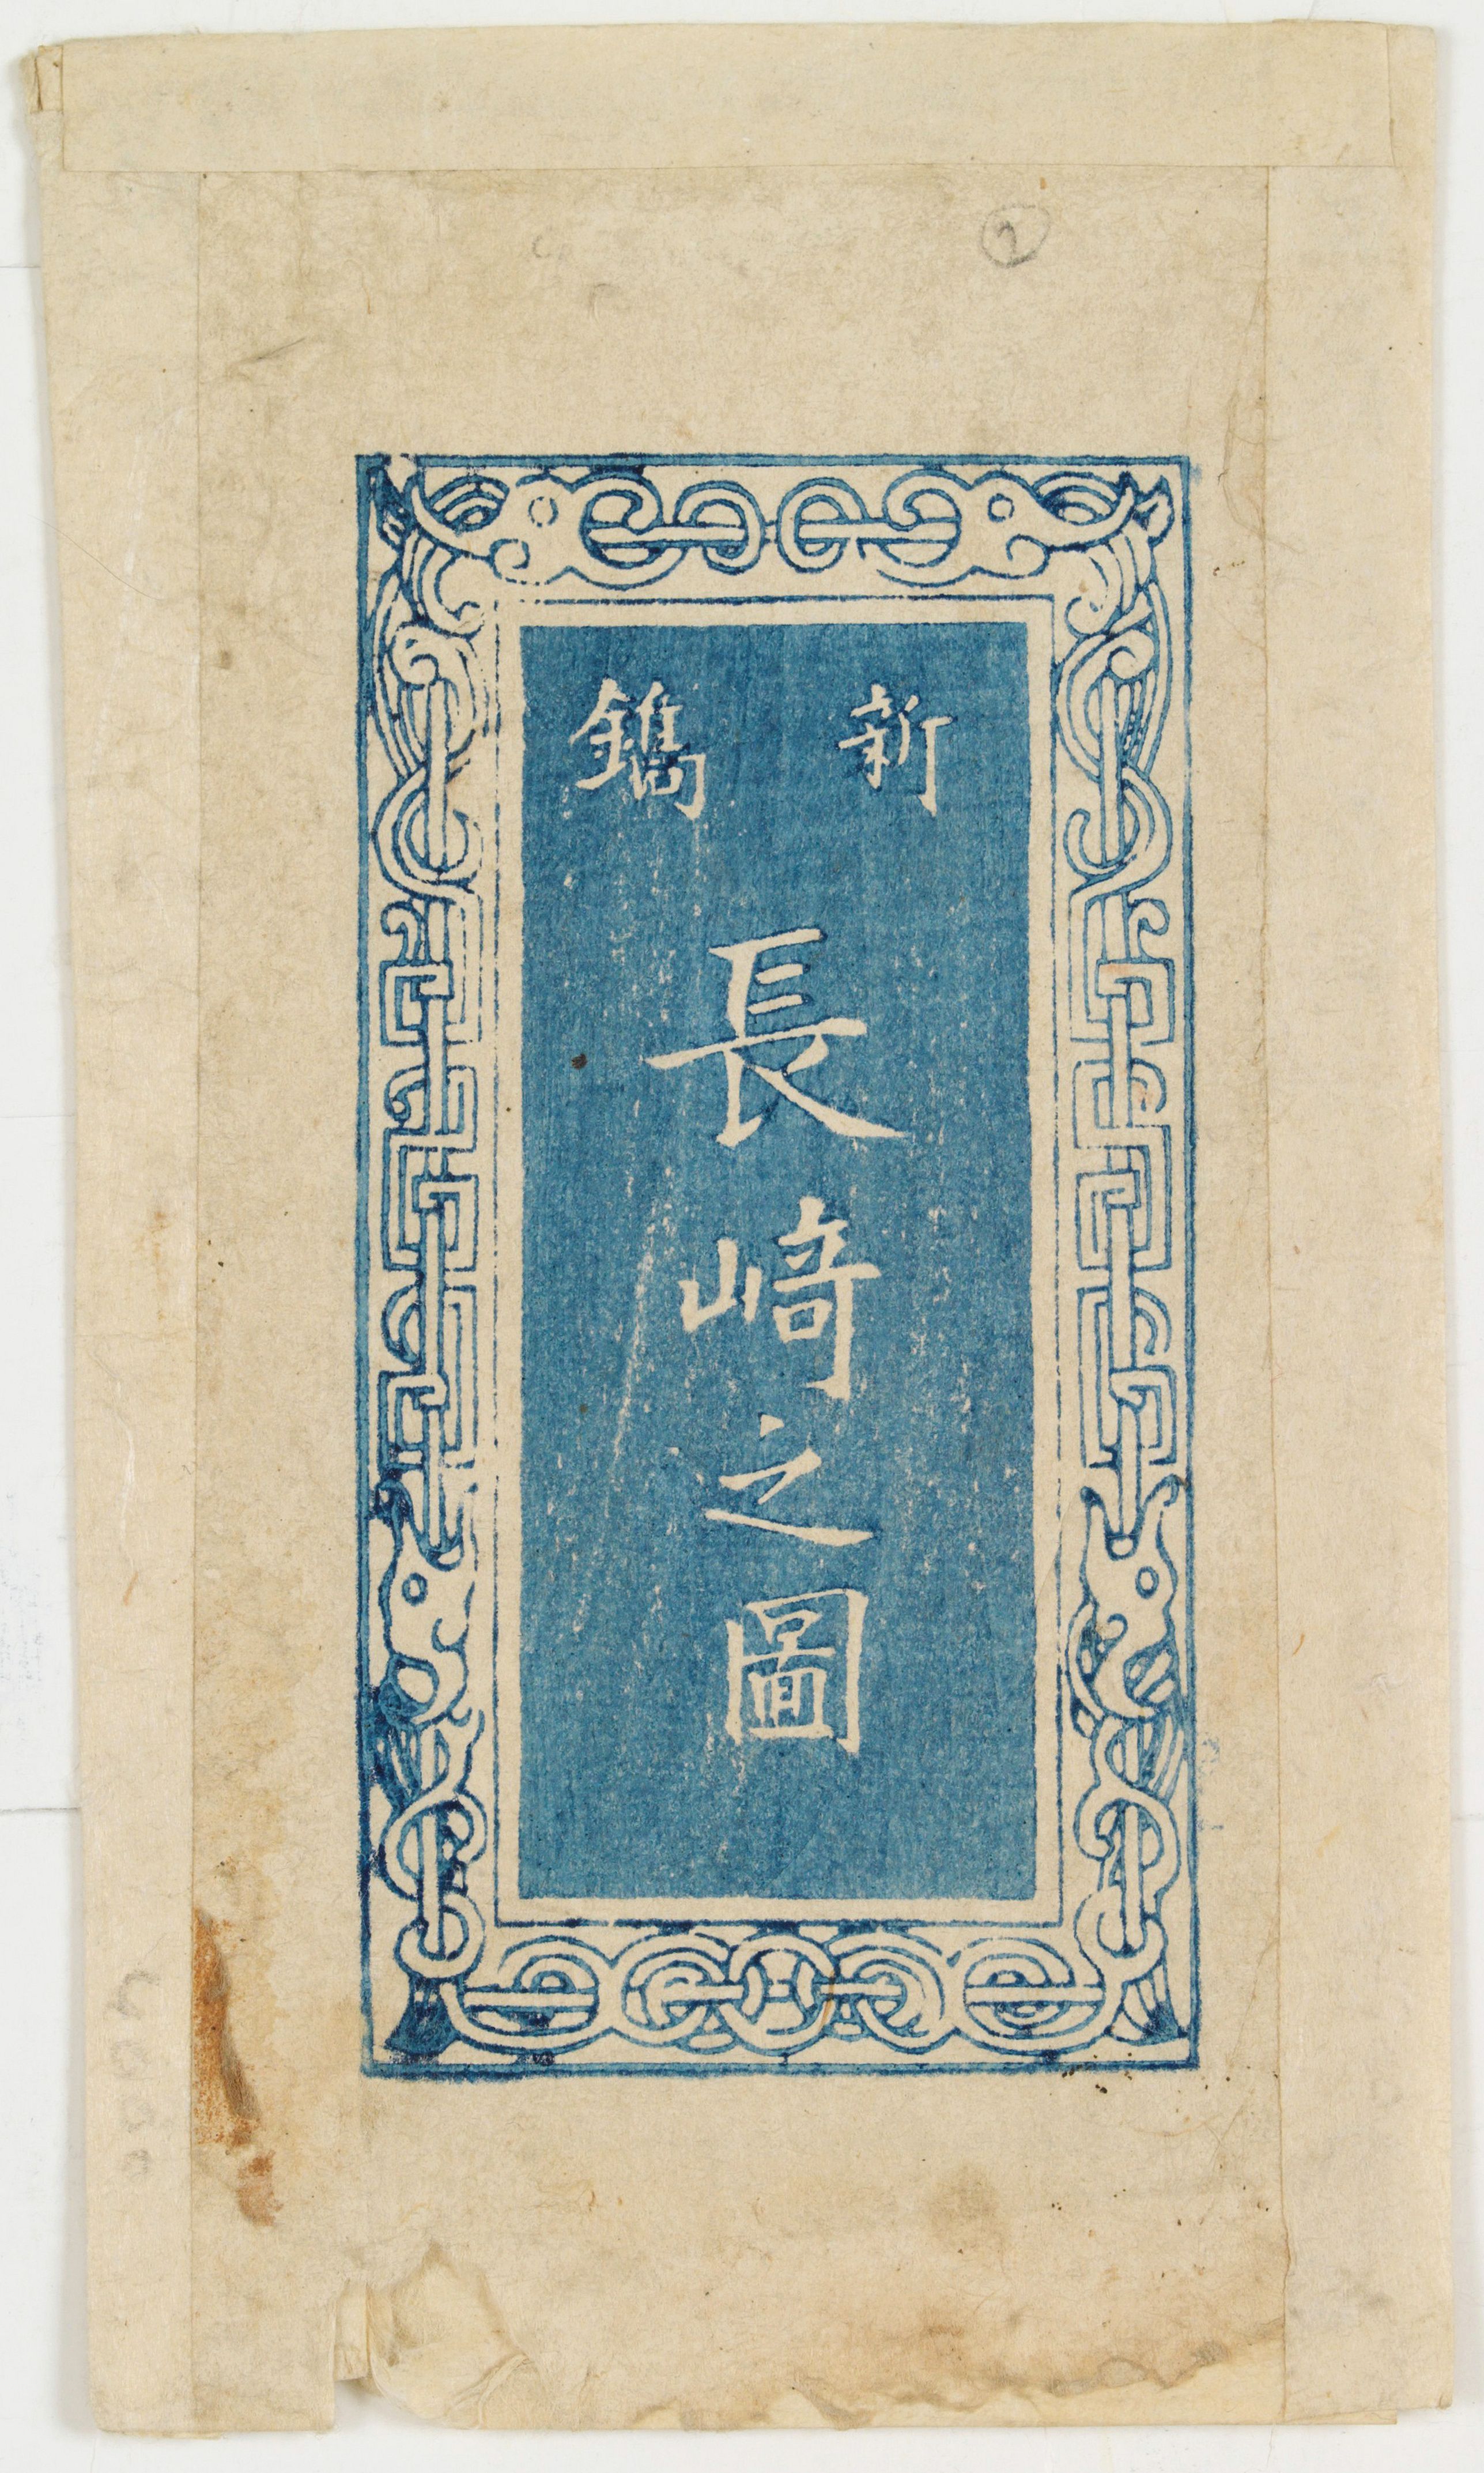 新鐫
長崎之圖
2